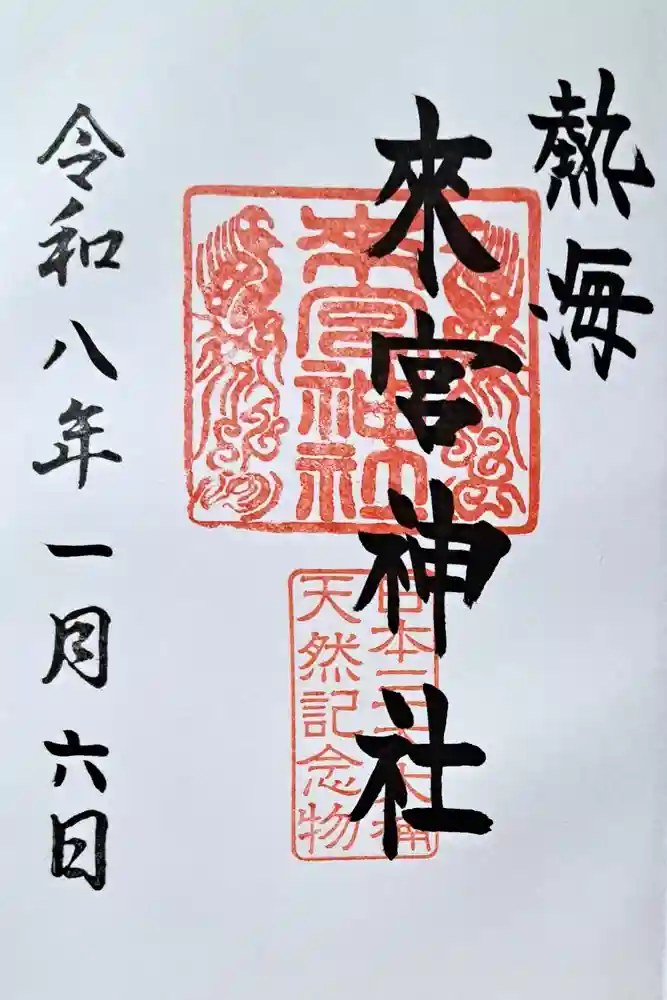 熱海
來宮神社
來宮神社
日本三大樟
天然記念物
令和八年一月六日